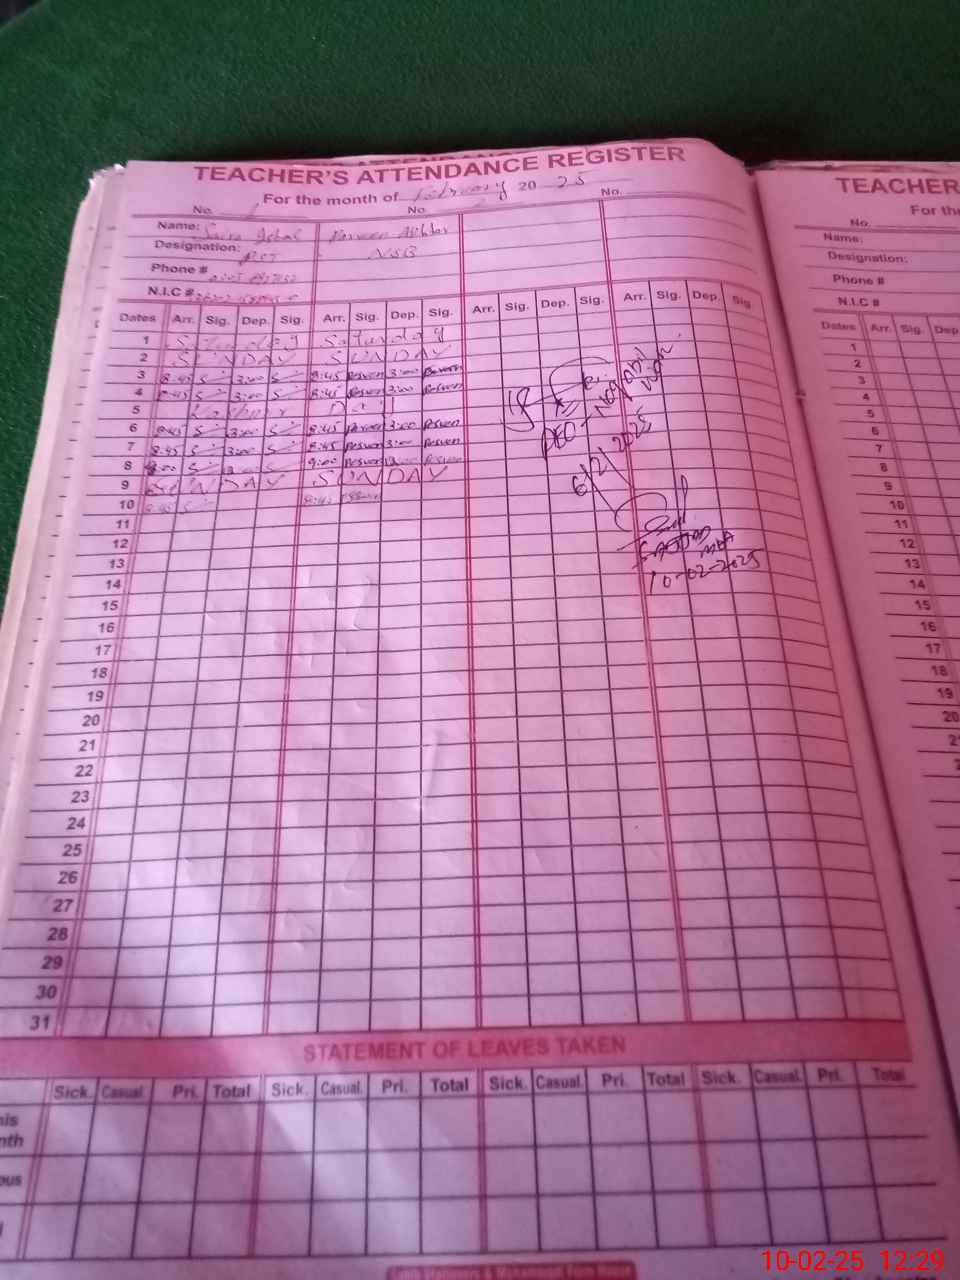 TEACHER'S ATTENDANCE REGISTER
For the month of February 20 25
No. 1 No. 2 No.
Name: Saira Iqbal Parveen Akhtar
Designation: PST NSB
Phone #
N.I.C #
Dates Arr. Sig. Dep. Sig. Arr. Sig. Dep. Sig. Arr. Sig. Dep. Sig. Arr. Sig. Dep. Sig.
1 Saturday Saturday
2 SUNDAY SUNDAY
3 8:45 S 3:00 S 8:45 Parveen 3:00 Parveen
4 8:45 S 3:00 S 8:45 Parveen 3:00 Parveen
5 Kashmir Day
6 8:45 S 3:00 S 8:45 Parveen 3:00 Parveen
7 8:45 S 3:00 S 8:45 Parveen 3:00 Parveen
8 9:00 S S 9:00 Parveen Parveen
9 SUNDAY SUNDAY
10 8:45 S 8:45 Parveen
11
12
13
14
15
16
17
18
19
20
21
22
23
24
25
26
27
28
29
30
31
DEO
6/2/2025
SAJJAD
MEA
10-02-2025
STATEMENT OF LEAVES TAKEN
Sick. Casual. Pri. Total Sick. Casual. Pri. Total Sick. Casual. Pri. Total Sick. Casual. Pri. Total
TEACHER
No.
Name:
Designation:
Phone #
N.I.C #
Dates Arr. Sig. Dep
1
2
3
4
5
6
7
8
9
10
11
12
13
14
15
16
17
18
19
20
10-02-25 12:29